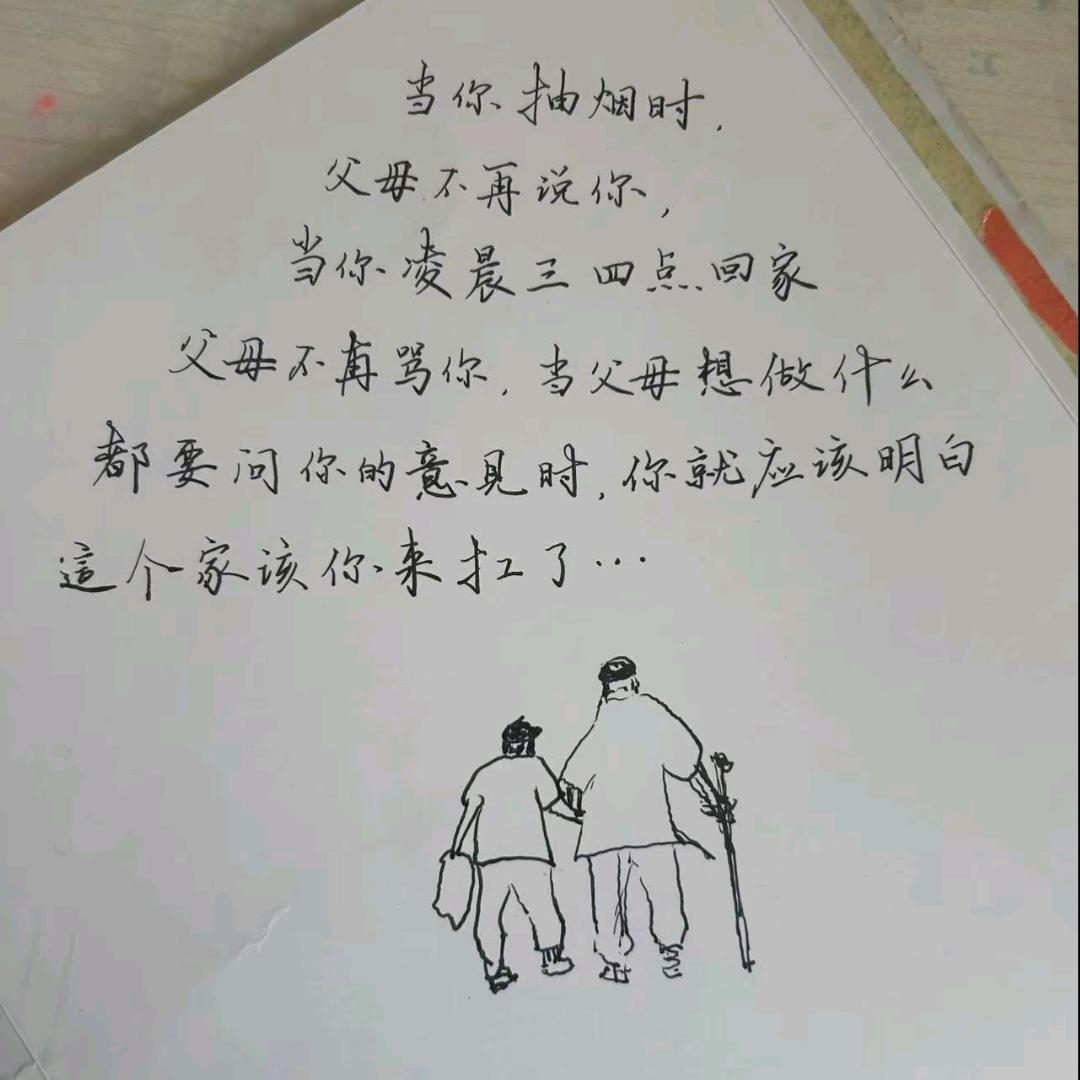 当你抽烟时,
父母不再说你,
当你凌晨三四点回家
父母不再骂你,当父母想做什么
都要问你的意见时,你就应该明白
這个家该你来扛了…